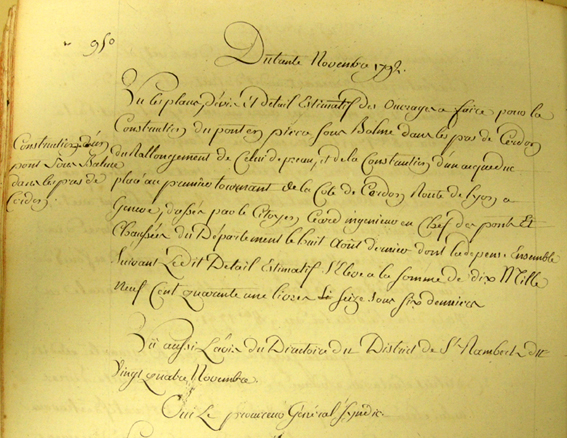 950
Du trente Novembre 1792.
Vu les plans, dévis Et détail Estimatif des Ouvrages a faire pour la
Construction du pont en pierre sous Balme dans le pas de Cerdon
Construction d'un
pont sous Balme
dans le pas de
Cerdon
du Rallongement de Celui de preau, et de la Construction d'un acqueduc
placé au premier tournant de la Cote de Cerdon Route de Lyon a
Geneve, dressés par le Citoyen Ceard ingenieur en Chef des ponts Et
Chaussées du Département le huit Août dernier dont la depense Ensemble
Suivant Ledit Detail Estimatif S'Eleve a la Somme de dix Mille
Neuf Cent quarante une livres seize sous six deniers
Vû aussi L'avis du Directoire du District de St Rambert du
Vingt quatre Novembre
Oui Le procureur Général Syndic